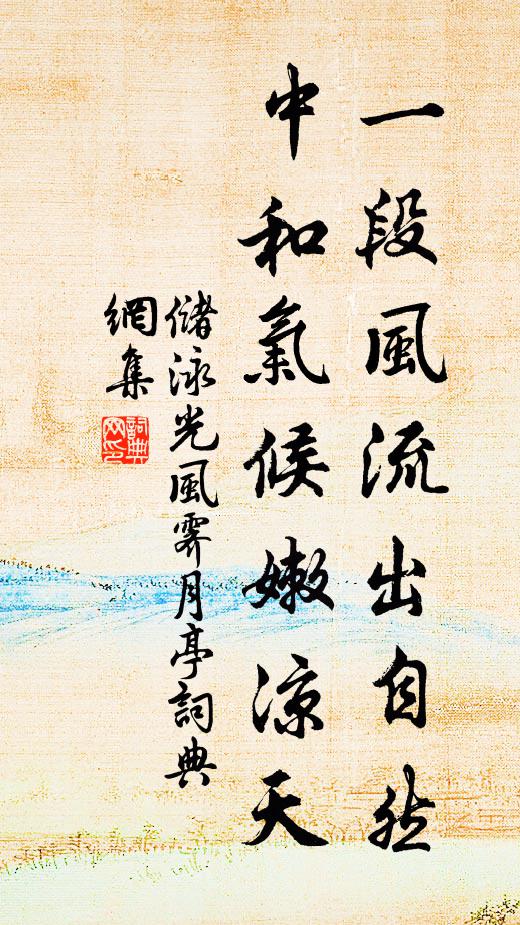 一段風流出自然
中和氣候嫩涼天
儲泳光風霽月亭詞典
網集
詞典
网印